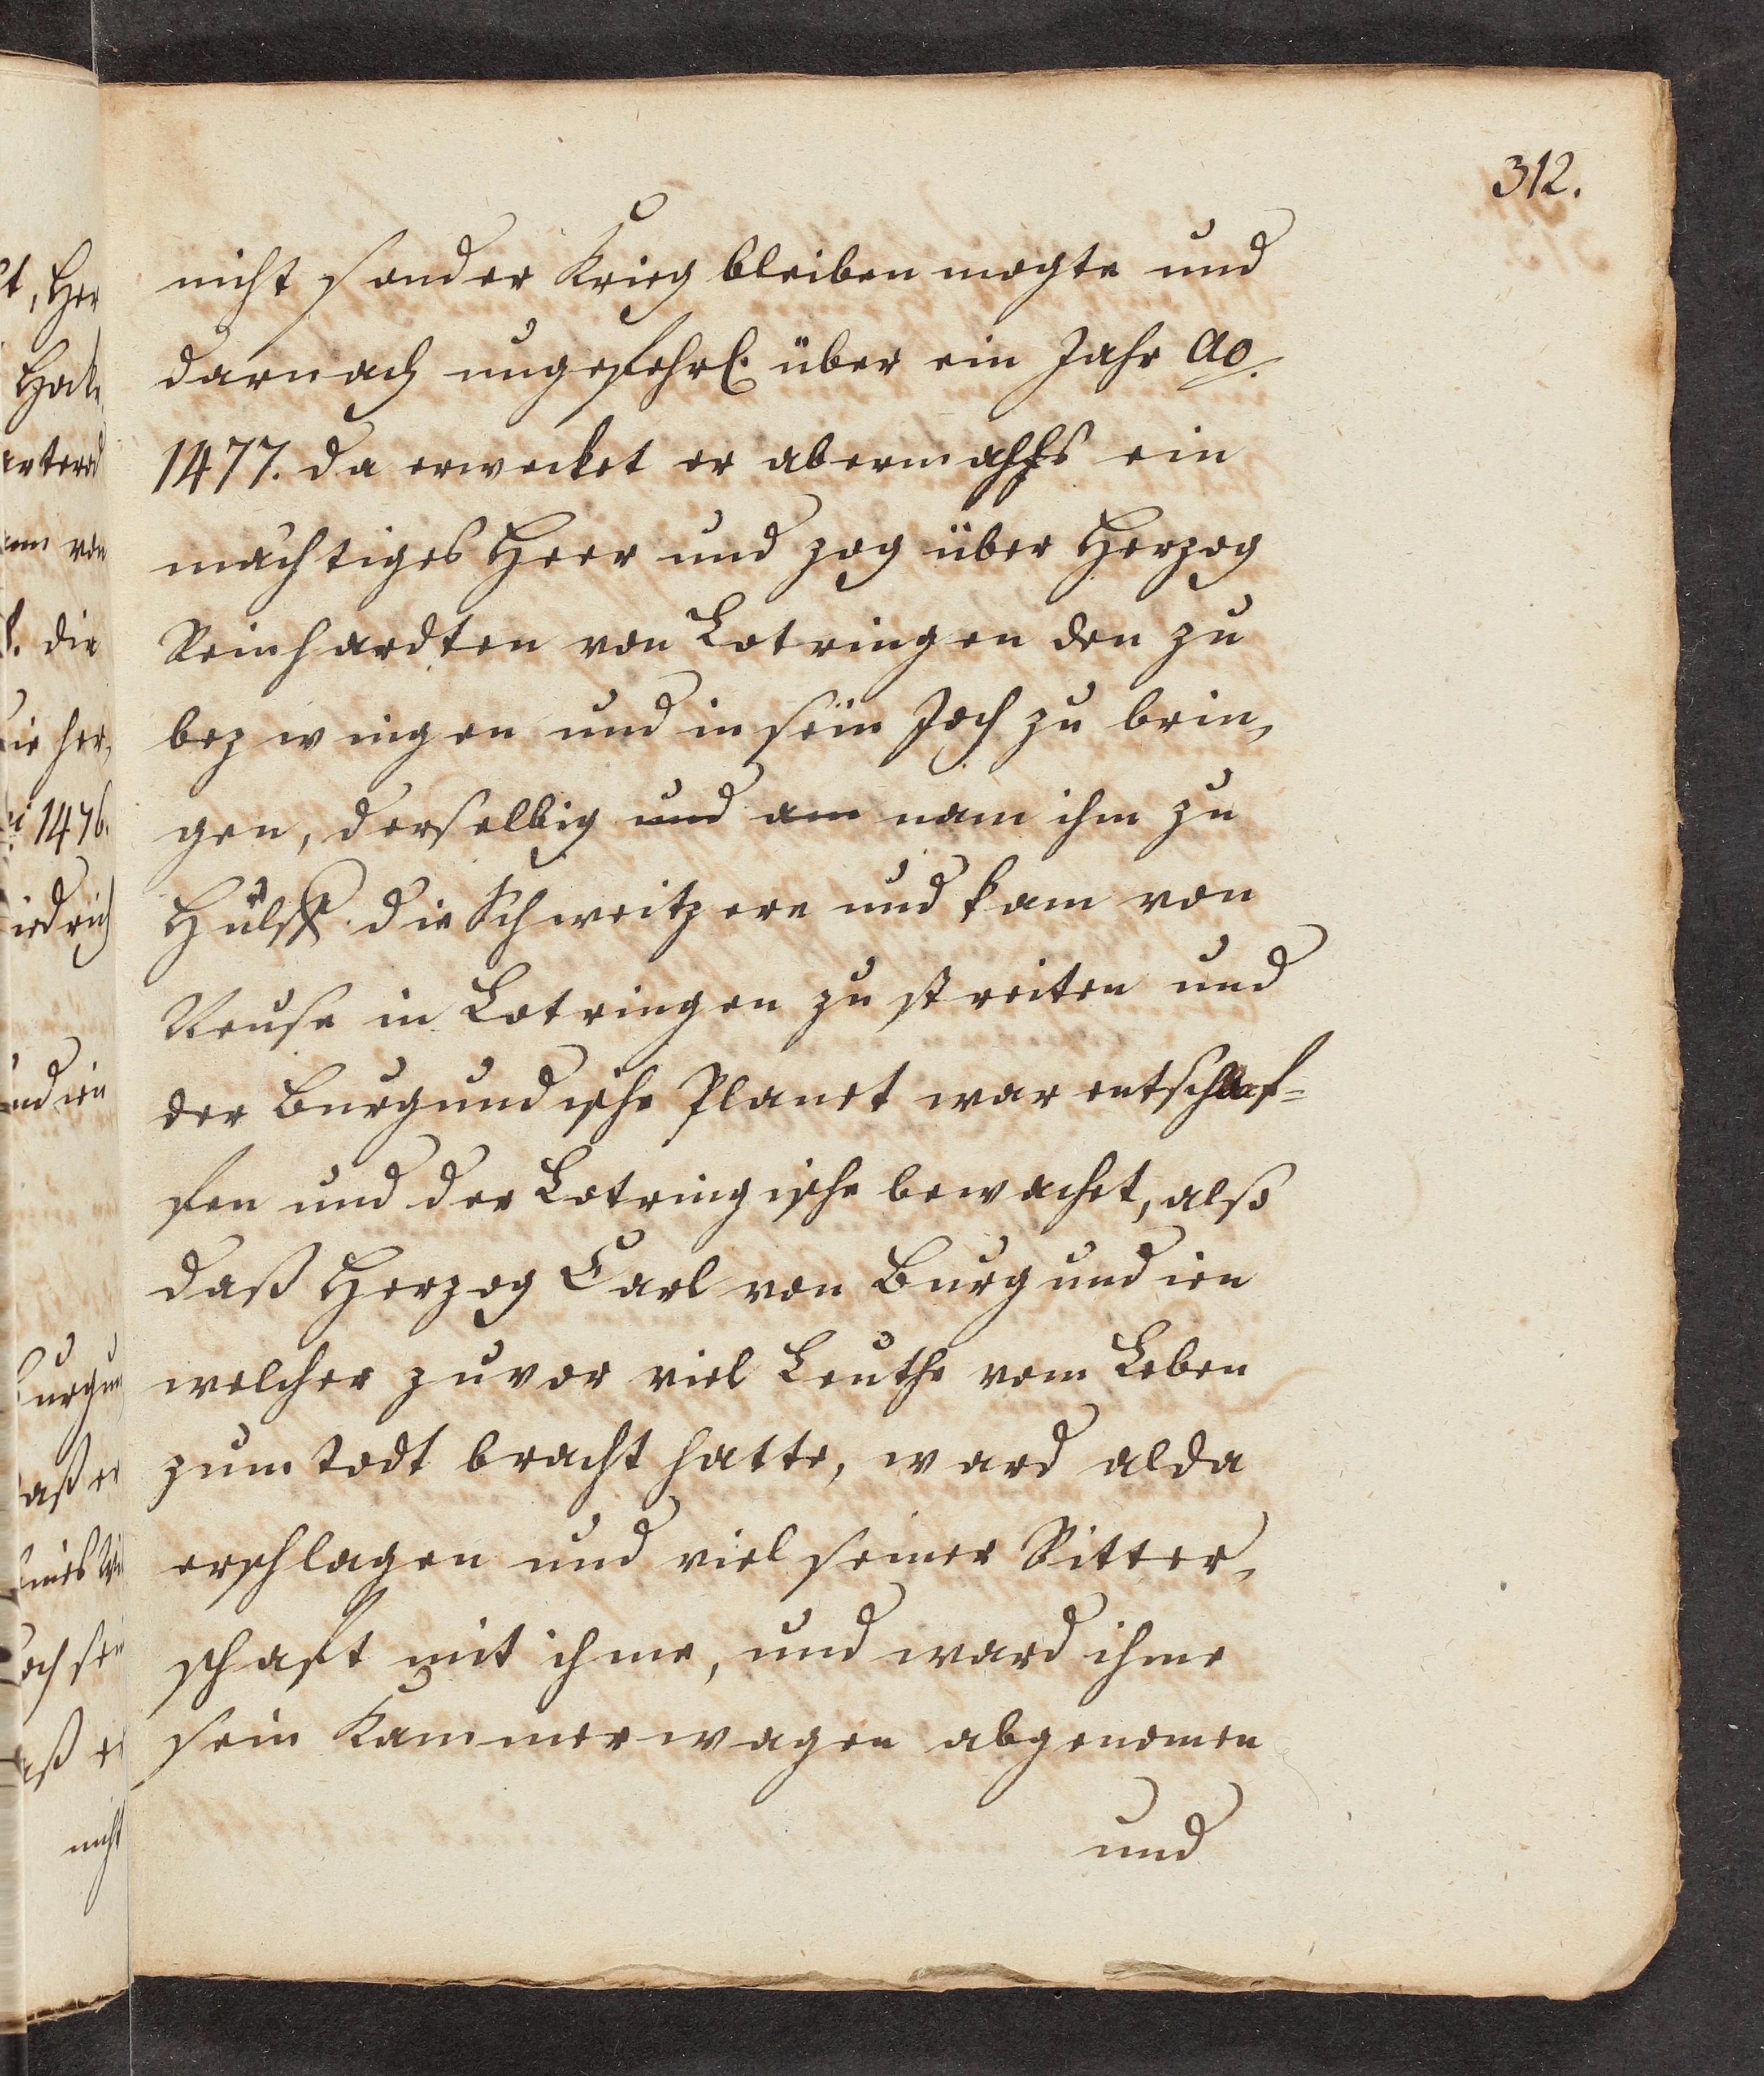 312.
nicht sonder Krieg bleiben mogte und
darnach ungefehrl. über ein Jahr Ao.
1477. da erwecket er abermahls ein
mächtiges Heer und zog über Herzog
Reinhardten von Lotringen den zu
bezwingen und in sein Joch zu brin,
gen, derselbig und am nam ihm zu
Hülff die Schweitzere und kam von
Neuse in Lotringen zu streiten und
der Burgundische Planet war entschlaf=
fen und der Lotringische bewachet, also
daß Herzog Carl von Burgundien
welcher zuvor viel Leuthe vom Leben
zum todt bracht hatte, ward alda
erschlagen und viel seiner Ritter,
schaft mit ihme, und ward ihme
sein Kammerwagen abgenomen
und